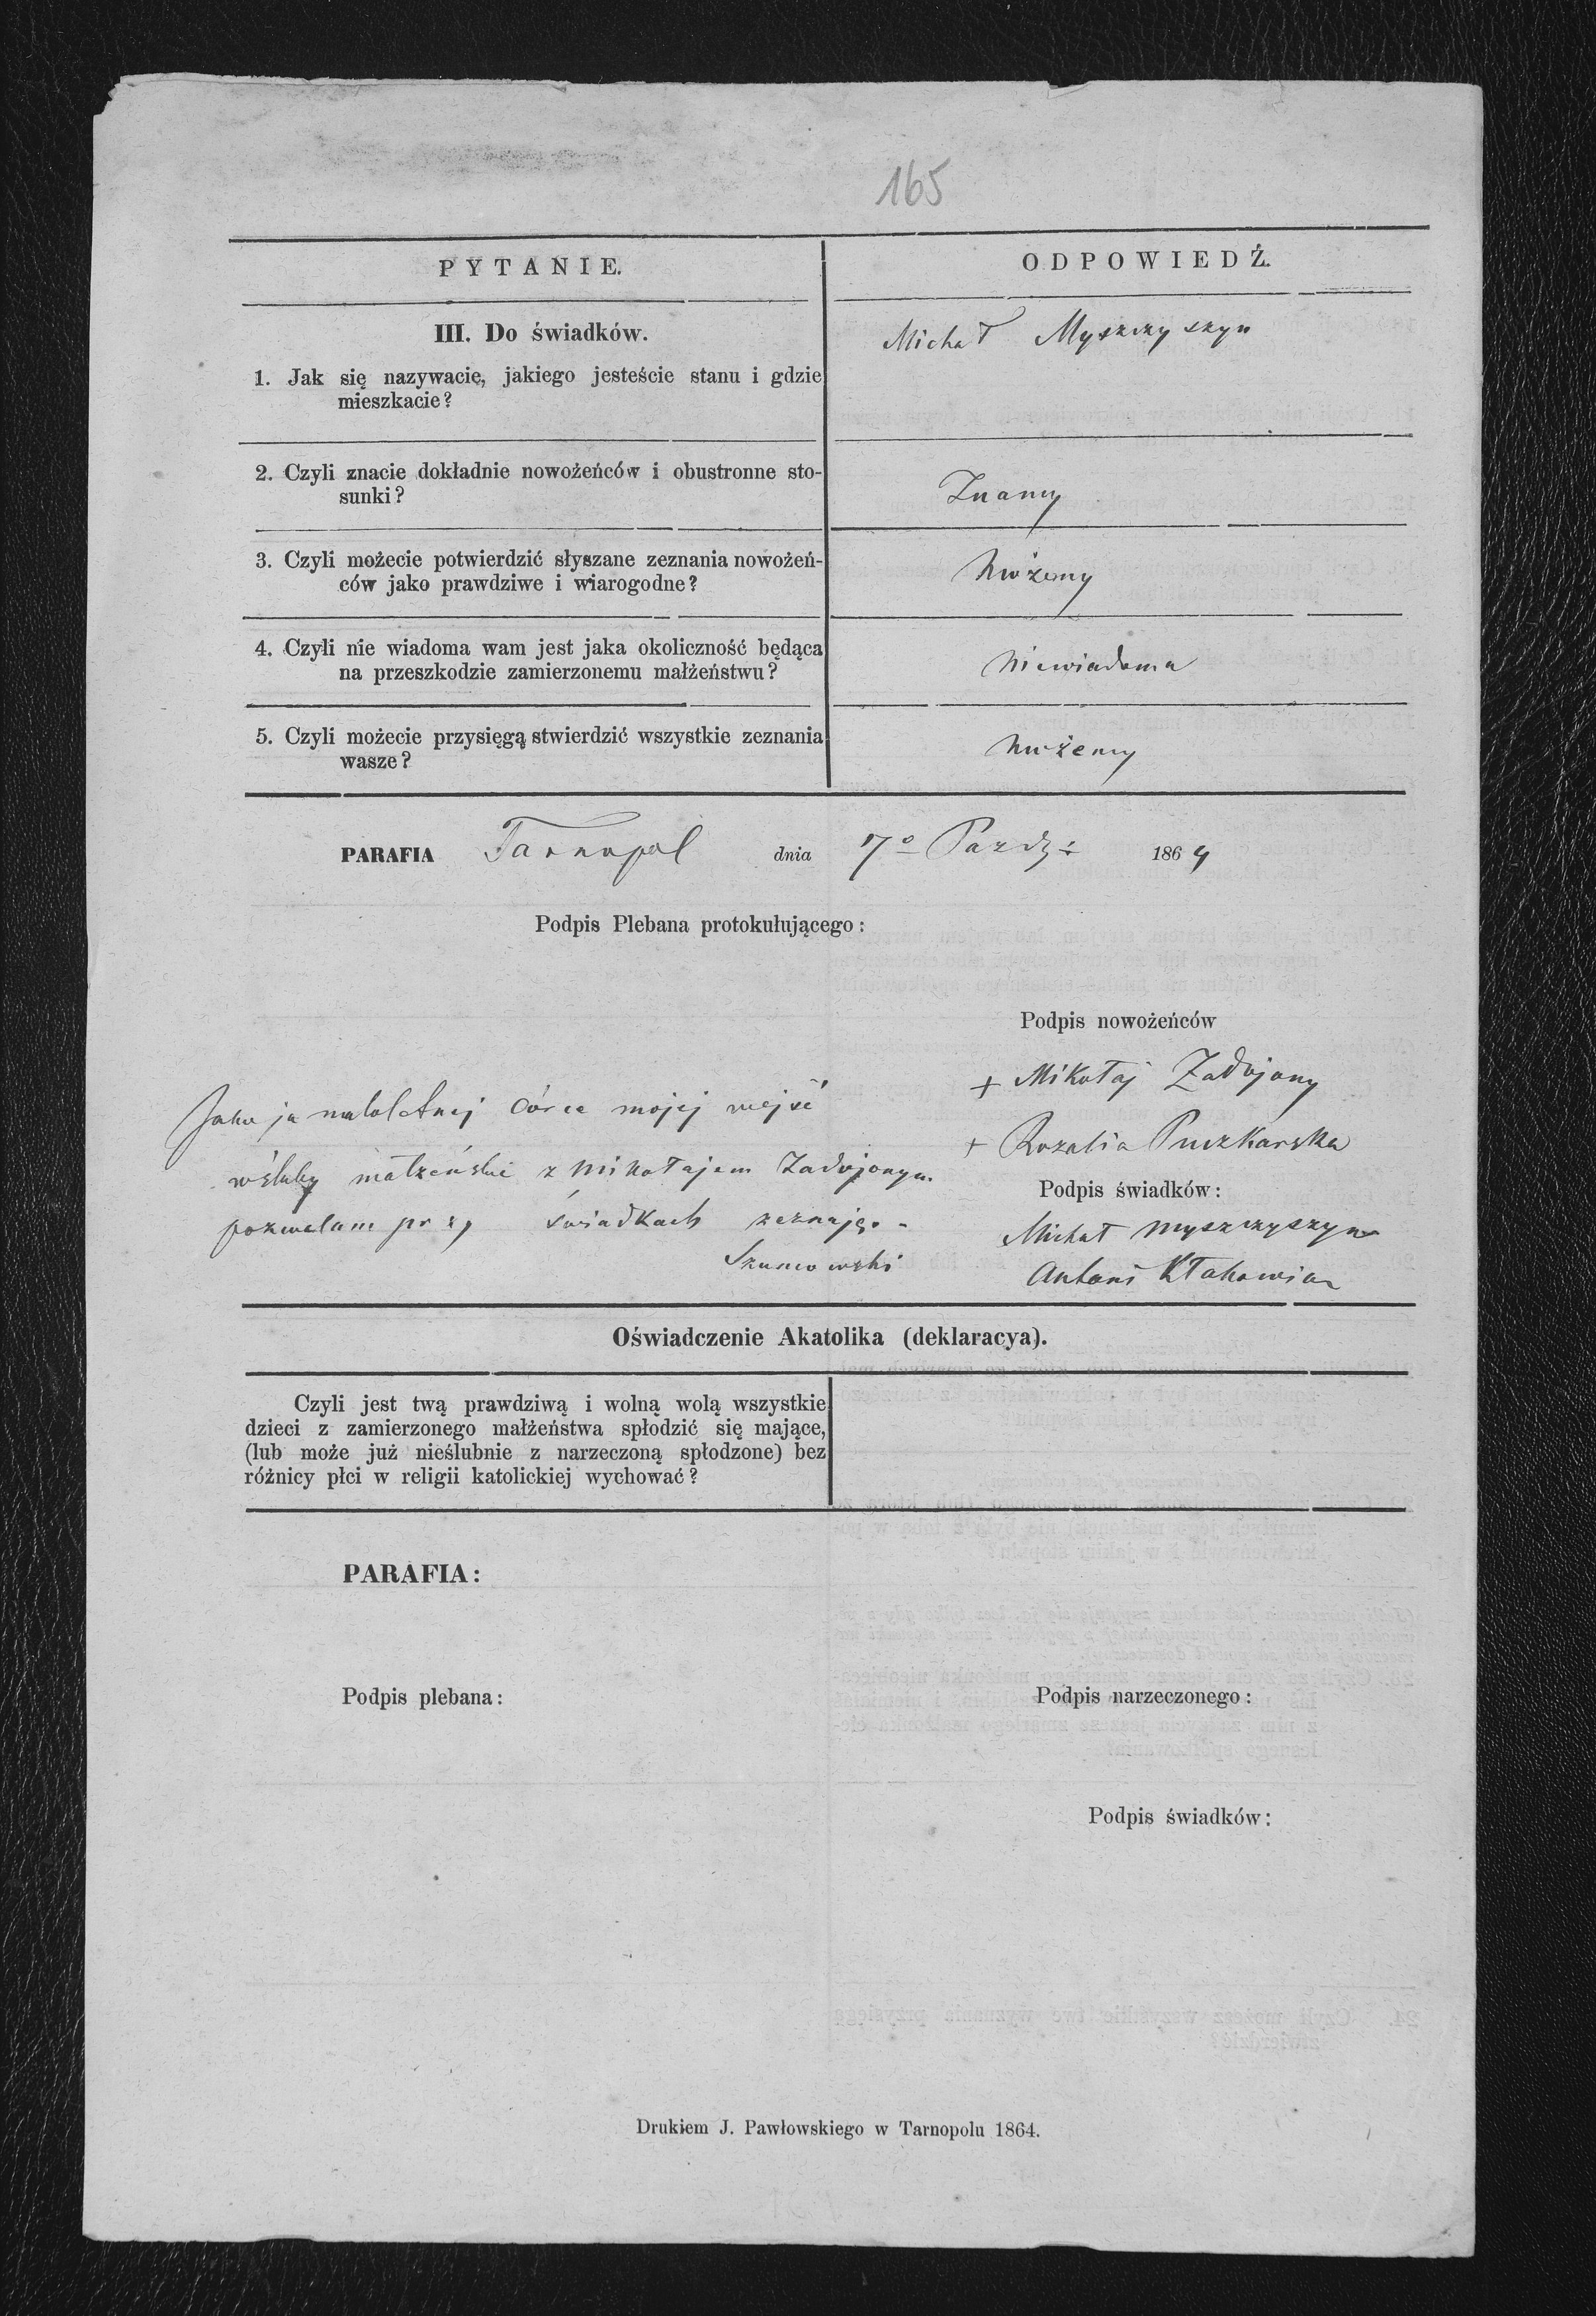 165
PYTANIE.
ODPOWIEDŹ.
III. Do świadków.
Michał Myszczyszyn
1. Jak się nazywacie, jakiego jesteście stanu i gdzie
mieszkacie?
2. Czyli znacie dokładnie nowożeńców i obustronne sto-
sunki?
Znamy
3. Czyli możecie potwierdzić słyszane zeznania nowożeń-
ców jako prawdziwe i wiarogodne?
Możemy
4. Czyli nie wiadoma wam jest jaka okoliczność będąca
na przeszkodzie zamierzonemu małżeństwu?
Niewiadoma
5. Czyli możecie przysięgą stwierdzić wszystkie zeznania
wasze?
Możemy
PARAFIA Tarnopol dnia 7º Paźdz: 1864
Podpis Plebana protokułującego:
Podpis nowożeńców
+ Mikołaj Zadojany
Jako ja małoletnej córce mojej wejść
+ Rozalia Puszkarska
w śluby małżeńskie z Mikołajem Zadojanym
Podpis świadków:
pozwalam przy świadkach zeznaję.-
Michał Myszczyszyn
Szumowski
Antoni
Oświadczenie Akatolika (deklaracya).
Czyli jest twą prawdziwą i wolną wolą wszystkie
dzieci z zamierzonego małżeństwa spłodzić się mające,
(lub może już nieślubnie z narzeczoną spłodzone) bez
różnicy płci w religii katolickiej wychować?
PARAFIA:
Podpis plebana:
Podpis narzeczonego:
Podpis świadków:
Drukiem J. Pawłowskiego w Tarnopolu 1864.